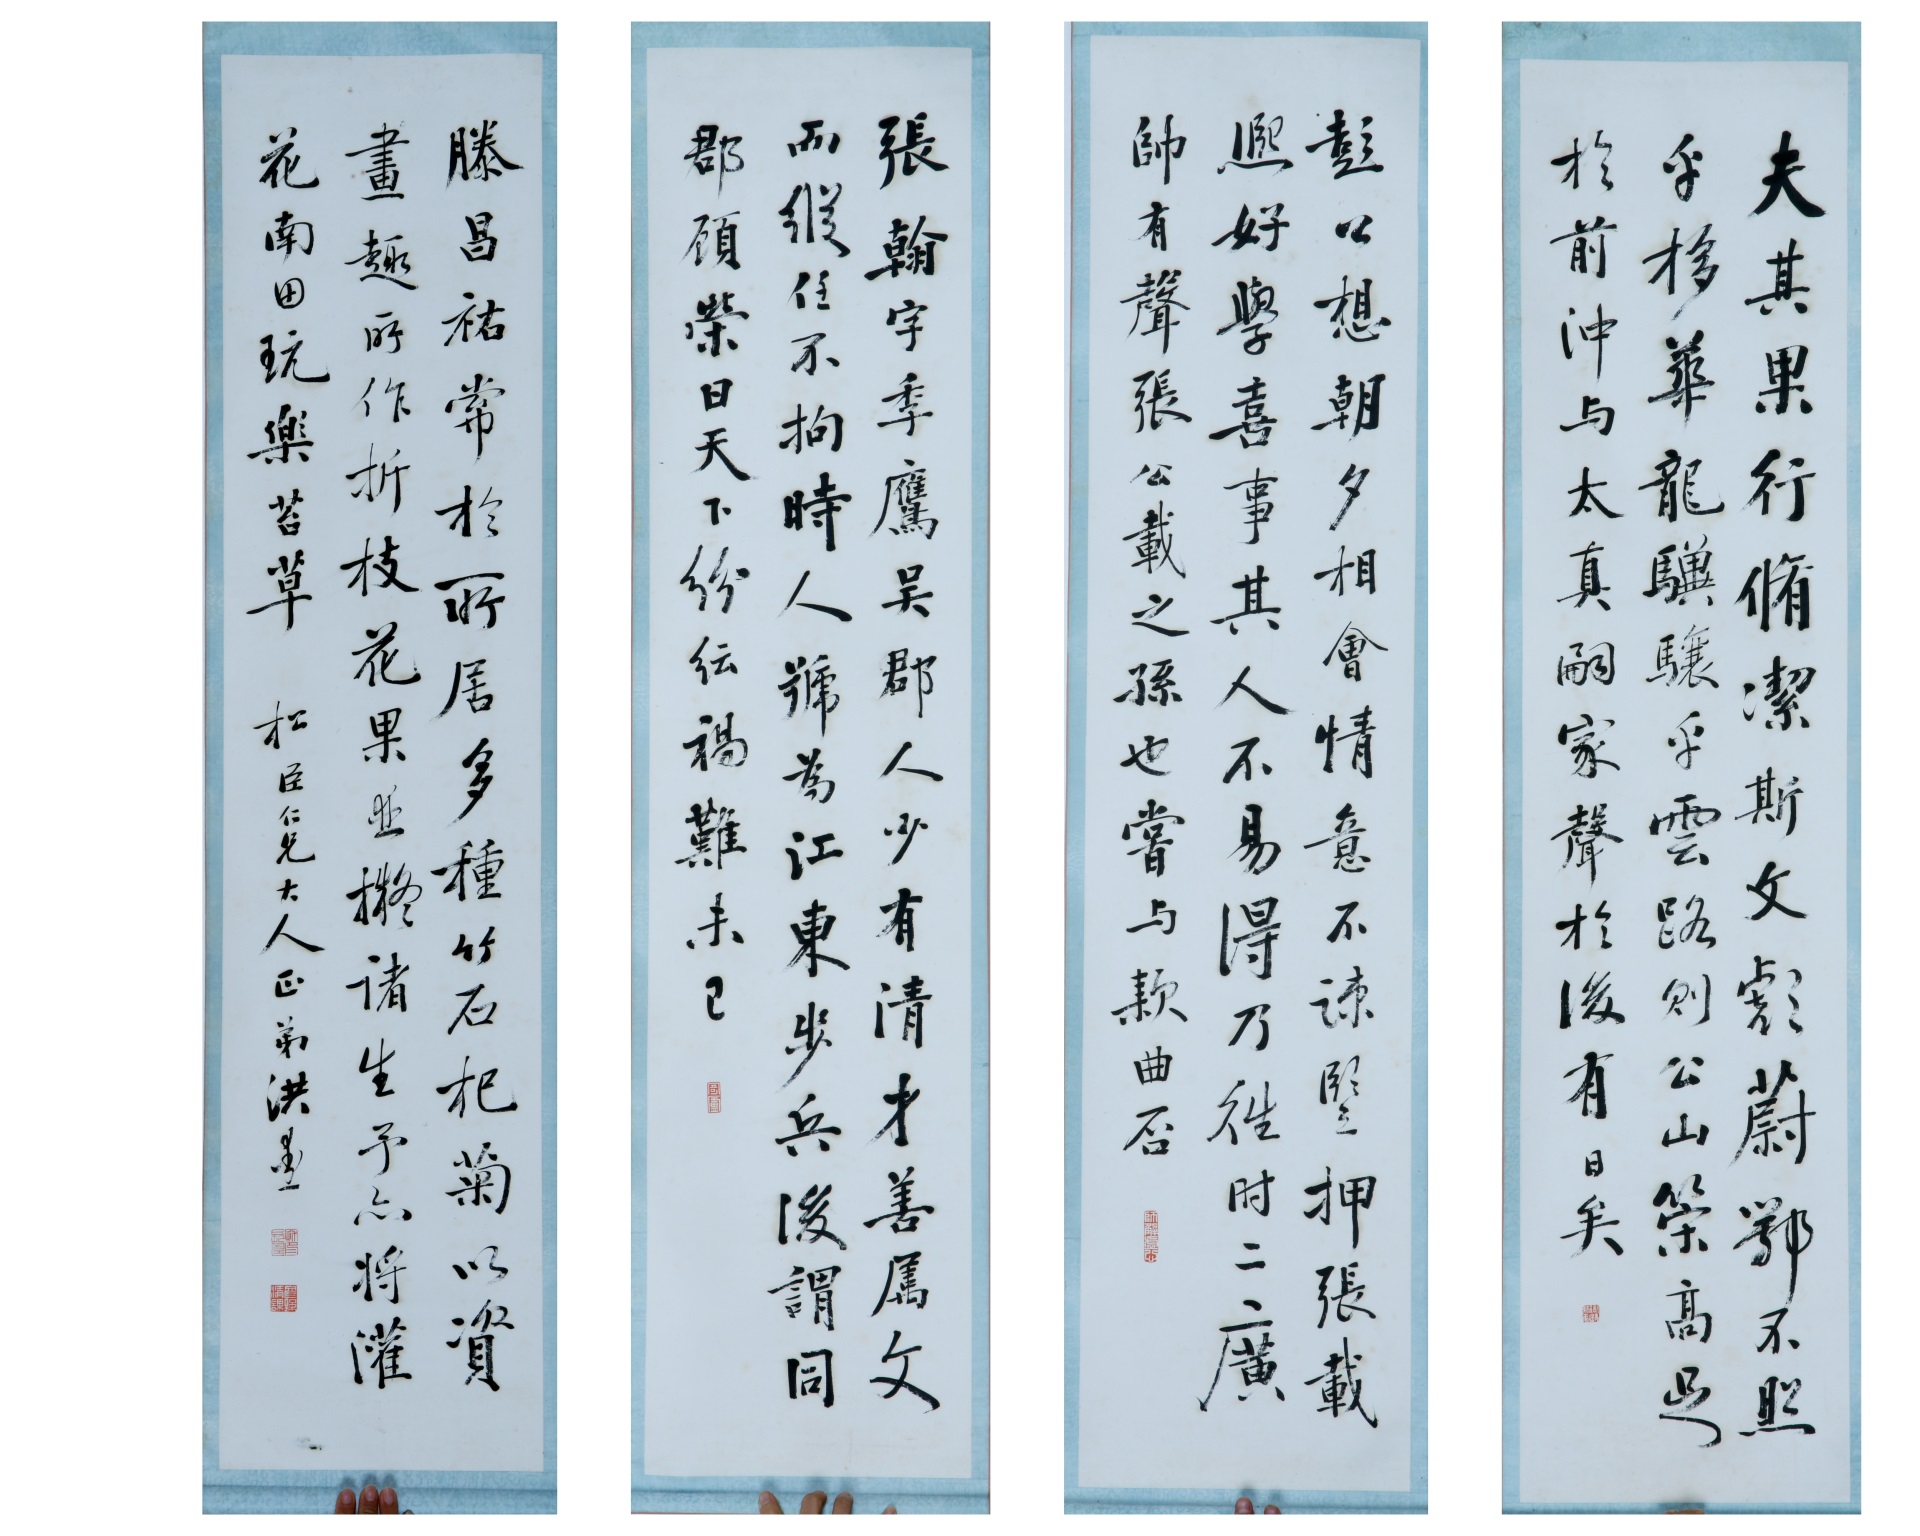 夫其果行脩潔斯文彪蔚鄂不照
乎移華龍驥驤乎雲路則公山策高足
於前沖与太真嗣家聲於後有日矣
彭公想朝夕相會情意不疎堅押張載
熙好學喜事其人不易得乃徃时二廣
帥有聲張公載之孫也嘗与款曲否
張翰字季鷹吴郡人少有清才善属文
而縱任不拘時人號為江東步兵後謂同
郡顧榮日天下紛纭禍難未已
滕昌祐常於所居多種竹石杞菊以資
畫趣所作折枝花果並擬諸生予亦将灌
花南田玩樂苔草
松臣仁兄大人正弟洪